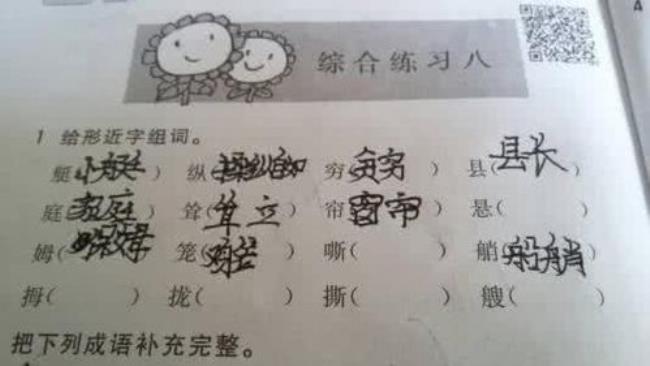 综合练习八
1 给形近字组词。
艇(小艇) 纵(操纵自如) 穷(贫穷) 县(县长)
庭(家庭) 耸(耸立) 帘(窗帘) 悬( )
姆(保姆) 笼( ) 嘶( ) 艄(船艄)
拇( ) 拢( ) 撕( ) 艘( )
把下列成语补充完整。